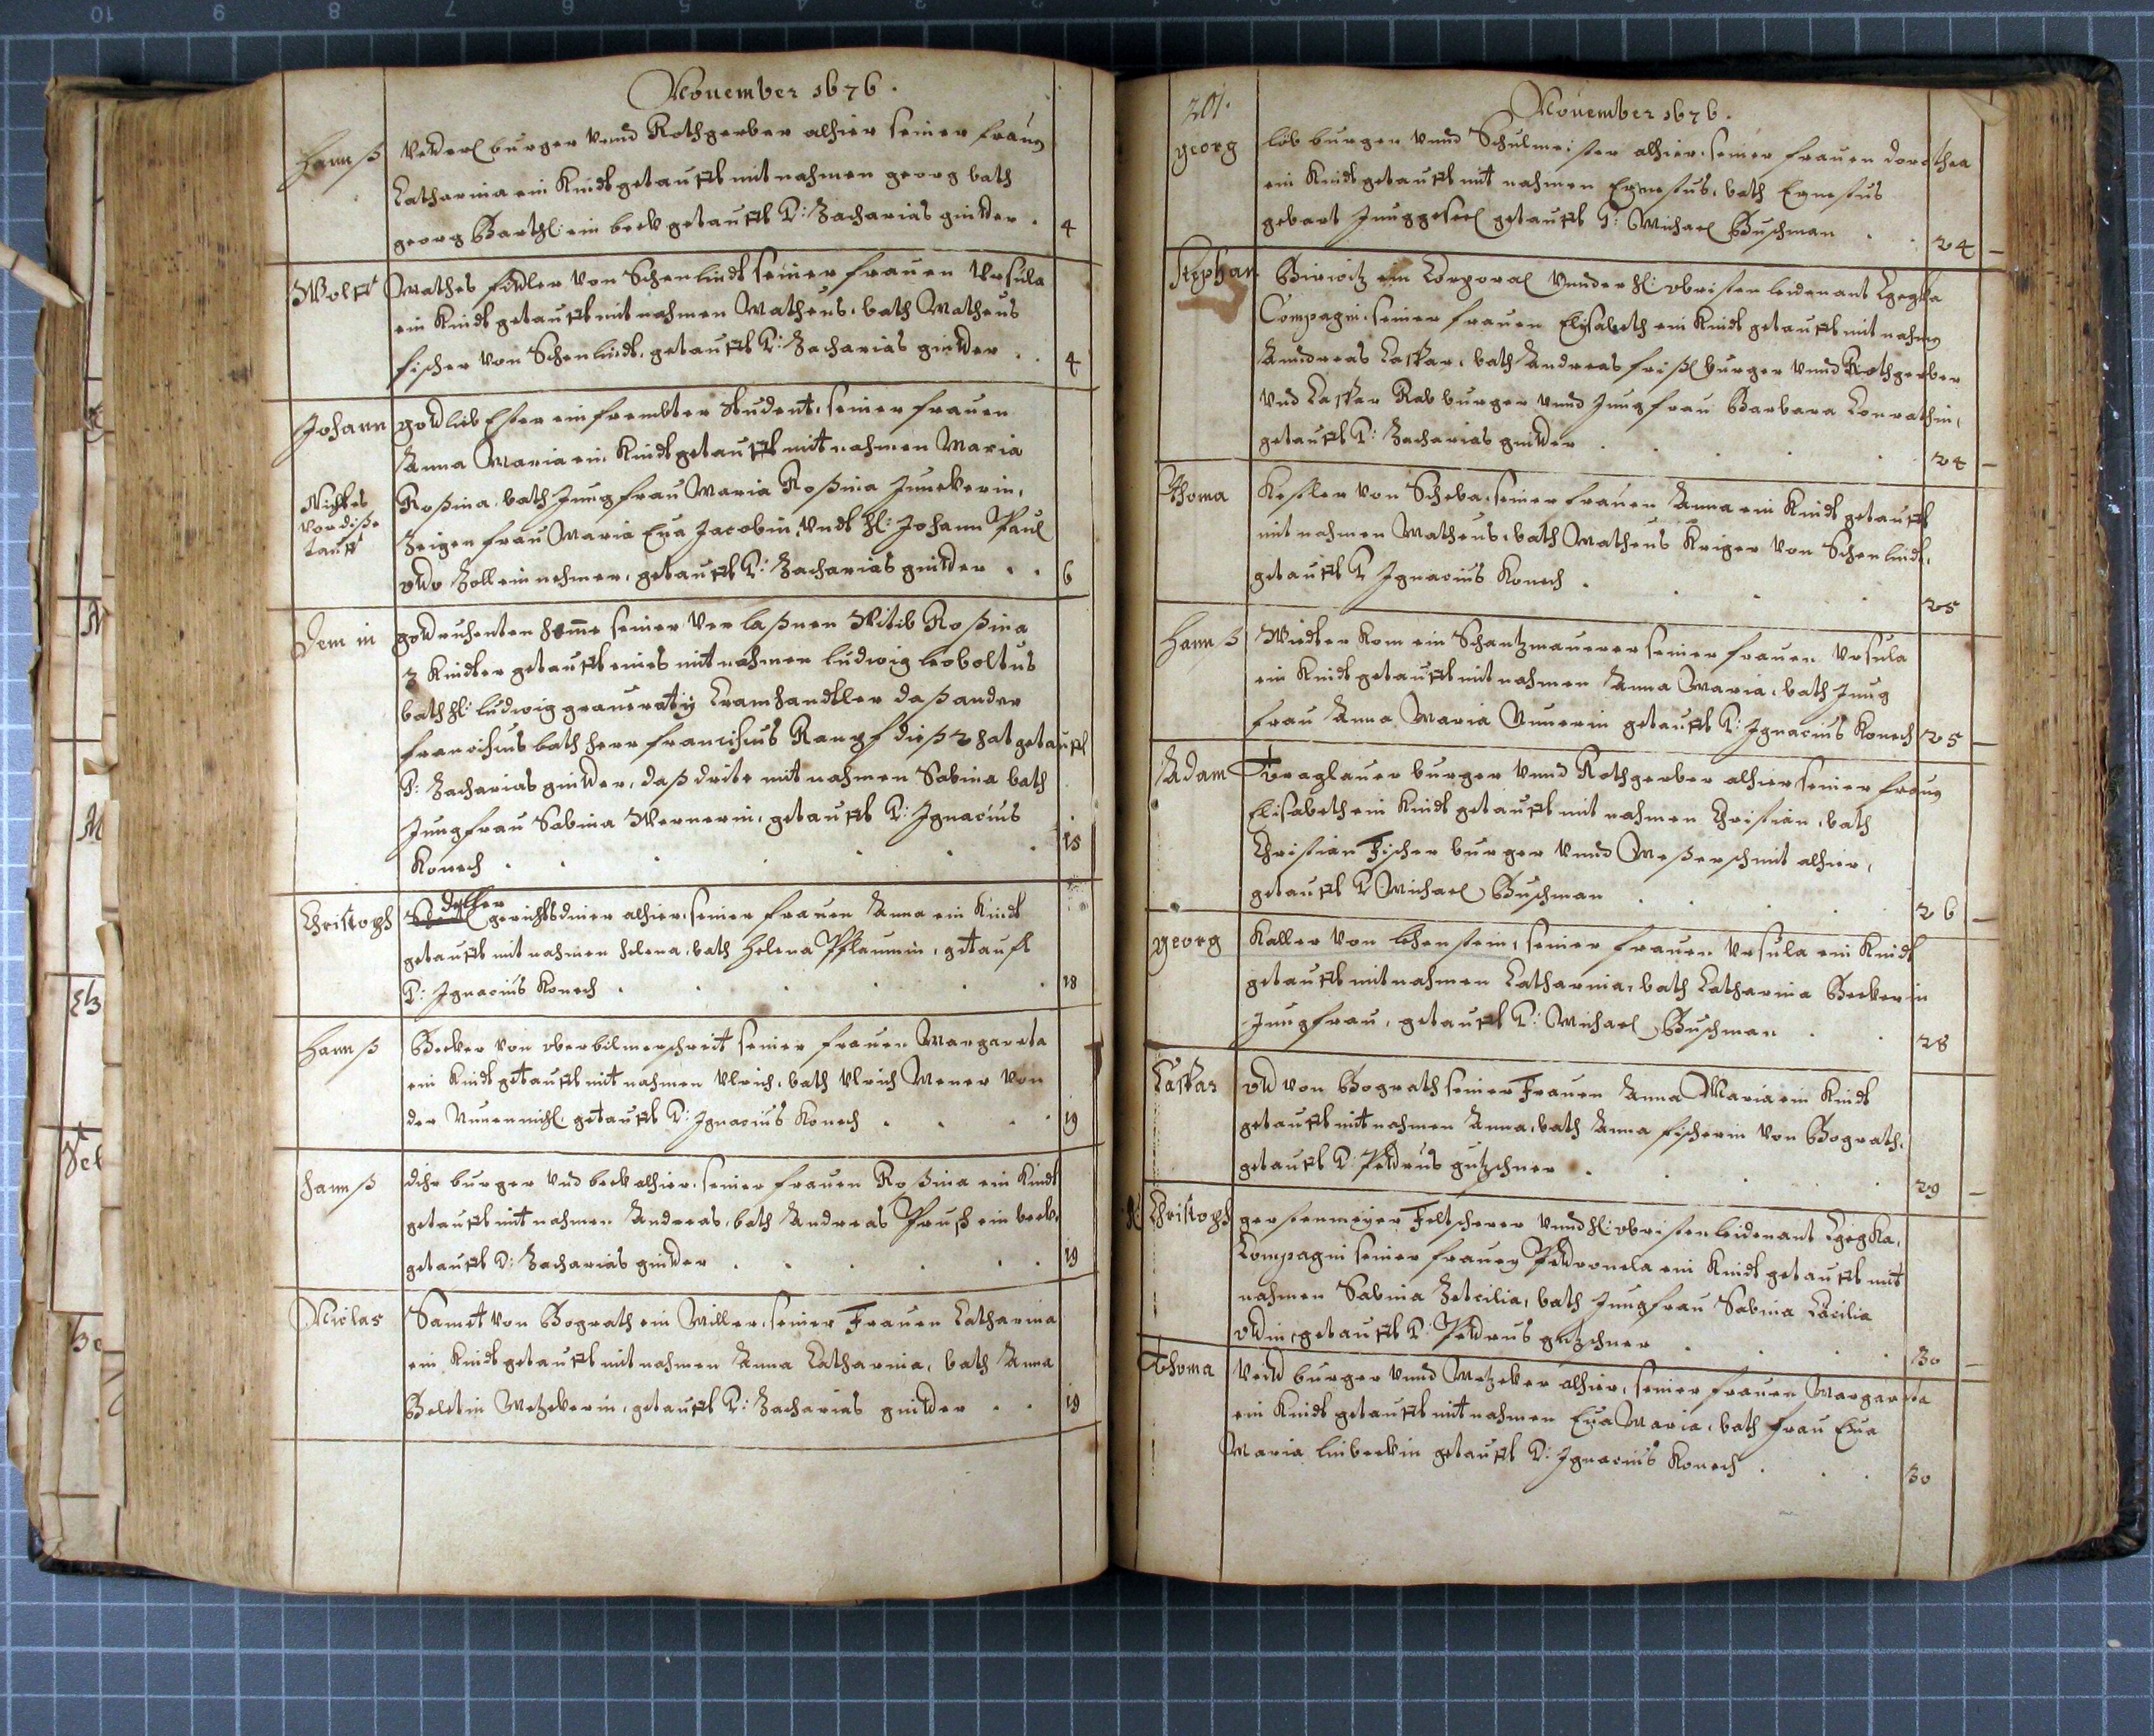 November 1676.
Hannß Vederl burger vnnd Rothgerber alhier seiner frauen
Catharina ein Kindt getaufft mit nahmen georg bath
georg Barthl: ein beck getaufft P: Zacharias 4
Wolff Mathes fidler von Schenlindt seiner frauen Vrsula
ein Kindt getaufft mit nahmen Matheus, bath Matheus
fischer von Schenlindt, getaufft P: Zacharias 4
Johann godlieb Ester ein frembter Student, seiner frauen
Anna Maria ein Kindt getaufft mit nahmen Maria
Nichtes Roßina, bath Jungfrau Maria Roßina Junckerin,
vor diße Zeigen frau Maria Eua Jacobin, vndt H: Johann Paul
tauff Zolleinnehmer, getaufft P: Zacharias 6
Dem in godt ruhenten seiner verlaßnen Witib Roßina
3 Kindter getaufft eines mit nahmen ludwig leoboltus
bath H: ludwig Cramhandtler daß ander
franciscus bath herr franciscus Rampf diese 2 hat getaufft
P: Zacharias daß drite mit nahmen Sabina bath
Jungfrau Sabina Wernerin, getaufft P: Ignacius
Konech 15
Christoph gerichtsdiner alhier, seiner frauen Anna ein Kindt
getaufft mit nahmen Helena, bath Helena Pflaumin, getaufft
P: Ignacius Konech 18
Hannß Becker von seiner frauen Margareta
ein Kindt getaufft mit nahmen Vlrich, bath Vlrich von
der getaufft P: Ignacius Konech 19
Hannß burger vnd beck alhier, seiner frauen Roßina ein Kindt
getaufft mit nahmen Andreas, bath Andreas ein beck,
getaufft P: Zacharias 19
Niclas Samet von Bograth ein Miller, seiner Frauen Catharina
ein Kindt getaufft mit nahmen Anna Catharina, bath Anna
Beltin Metzckerin, getaufft P: Zacharias 19
201.
November 1676.
georg löb burger vnnd Schulmeister alhier, seiner frauen dorothea
ein Kindt getaufft mit nahmen Ernestus, bath Ernestus
gebart Junggesel getaufft P: Michael Buschman 24
Stephan ein Corporal vnder H: obristen leidenant
Compagni, seiner frauen Elisabeth ein Kindt getaufft mit nahmen
Anndreas Caspar, bath Andreas burger vnnd Rothgerber
vnd Caspar Rab burger vnnd Jungfrau Barbara Conrathin,
getaufft P: Zacharias 24
Thoma Keßler von Scheba, seiner frauen Anna ein Kindt getaufft
mit nahmen Matheus, bath Matheus Kriger von Schenlindt,
getaufft P Ignacius Konech 25
Hannß ein Schantzmaurer seiner frauen Vrsula
ein Kindt getaufft mit nahmen Anna Maria, bath Jung
frau Anna Maria getaufft P: Ignacius Konech 25
Adam burger vnnd Rothgerber alhier seiner frauen
Elisabeth ein Kindt getaufft mit nahmen Christian, bath
Christian Fischer burger vnnd Meßerschmit alhier,
getaufft P Michael Buschman 26
georg Kaller von lehenstein, seiner frauen Vrsula ein Kindt
getaufft mit nahmen Catharina, bath Catharina Beckerin
Jungfrau, getaufft P: Michael Buschman 28
Caspar von Bograth seiner Frauen Anna Maria ein Kindt
getaufft mit nahmen Anna, bath Anna fischerin von Bograth,
getaufft P: Petdrus 29
Christoph gerstenmeyer Feltscherer vnnd H: obristen leidenant
Compagni seiner frauen Petdronela ein Kindt getaufft mit
nahmen Sabina Zetcilia, bath Jungfrau Sabina Cäcilia
getaufft P: Petdrus 30
Thoma burger vnnd Metzcker alhier, seiner frauen Margareta
ein Kindt getaufft mit nahmen Eua Maria, bath frau Eua
Maria getaufft P: Ignacius Konech 30